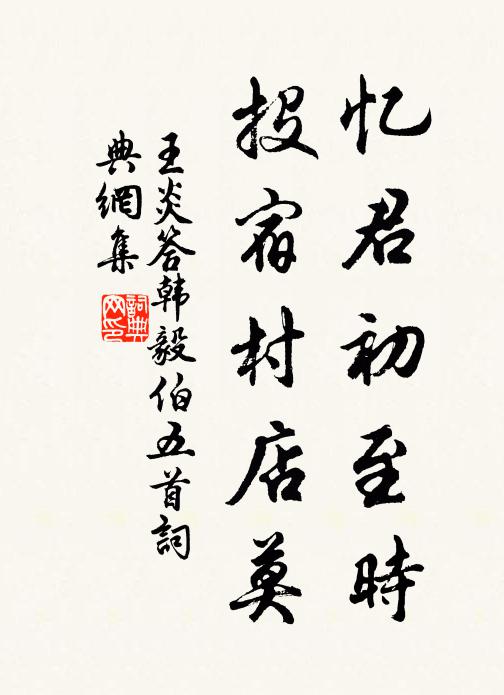 忆君初至時
投宿村店莫
王炎答韩毅伯五首詞
典網集
詞典网印